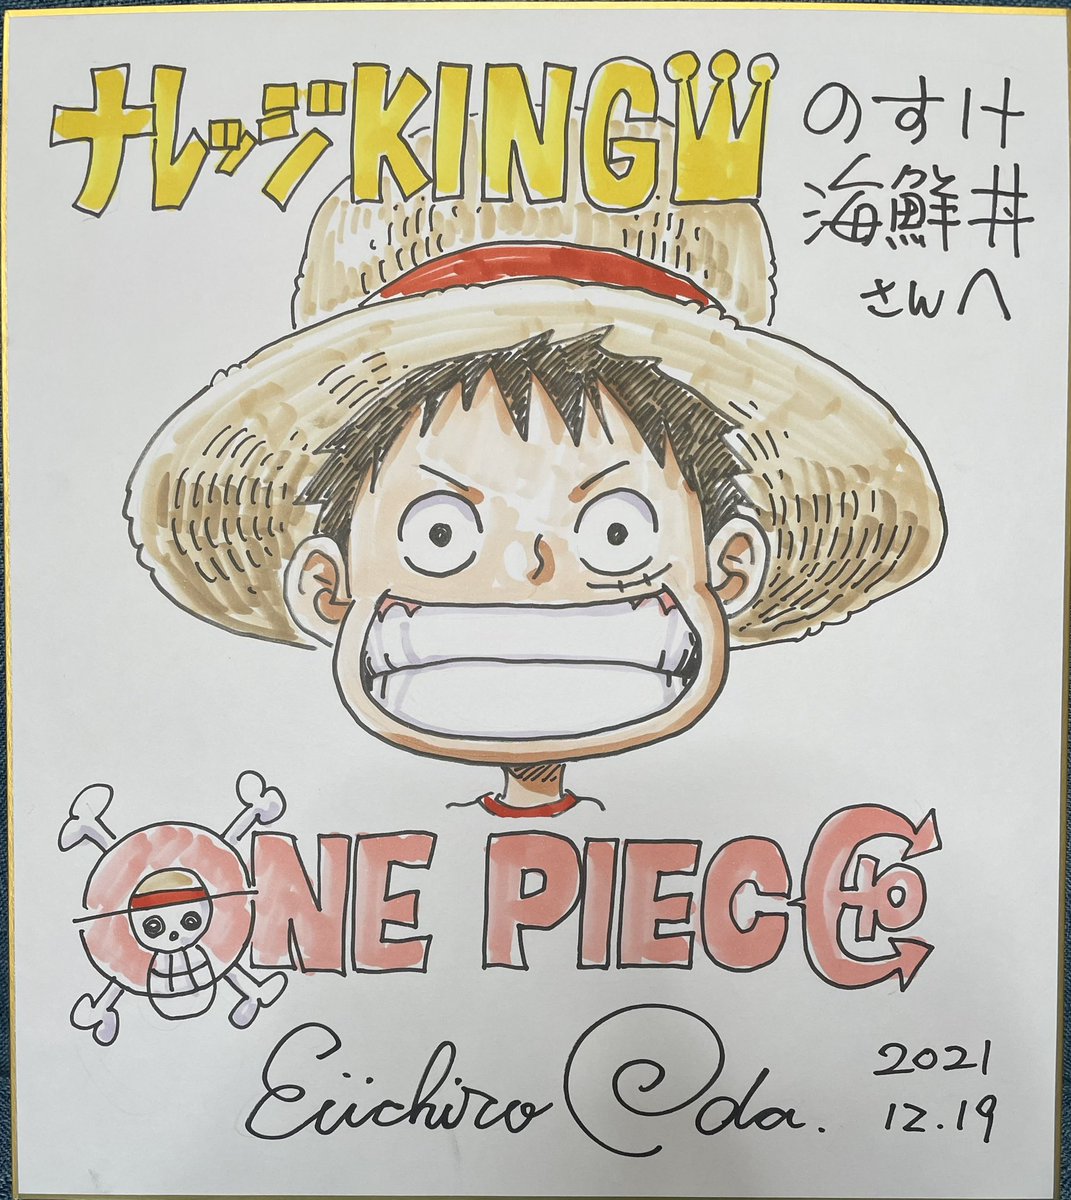 ナレッジKING
のすけ
海鮮丼
さんへ
ONE PIECE
Eiichiro Oda.
2021
12.19